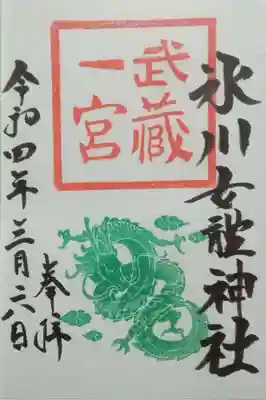 氷川女體神社
武蔵
一宮
奉拝
令和四年三月六日